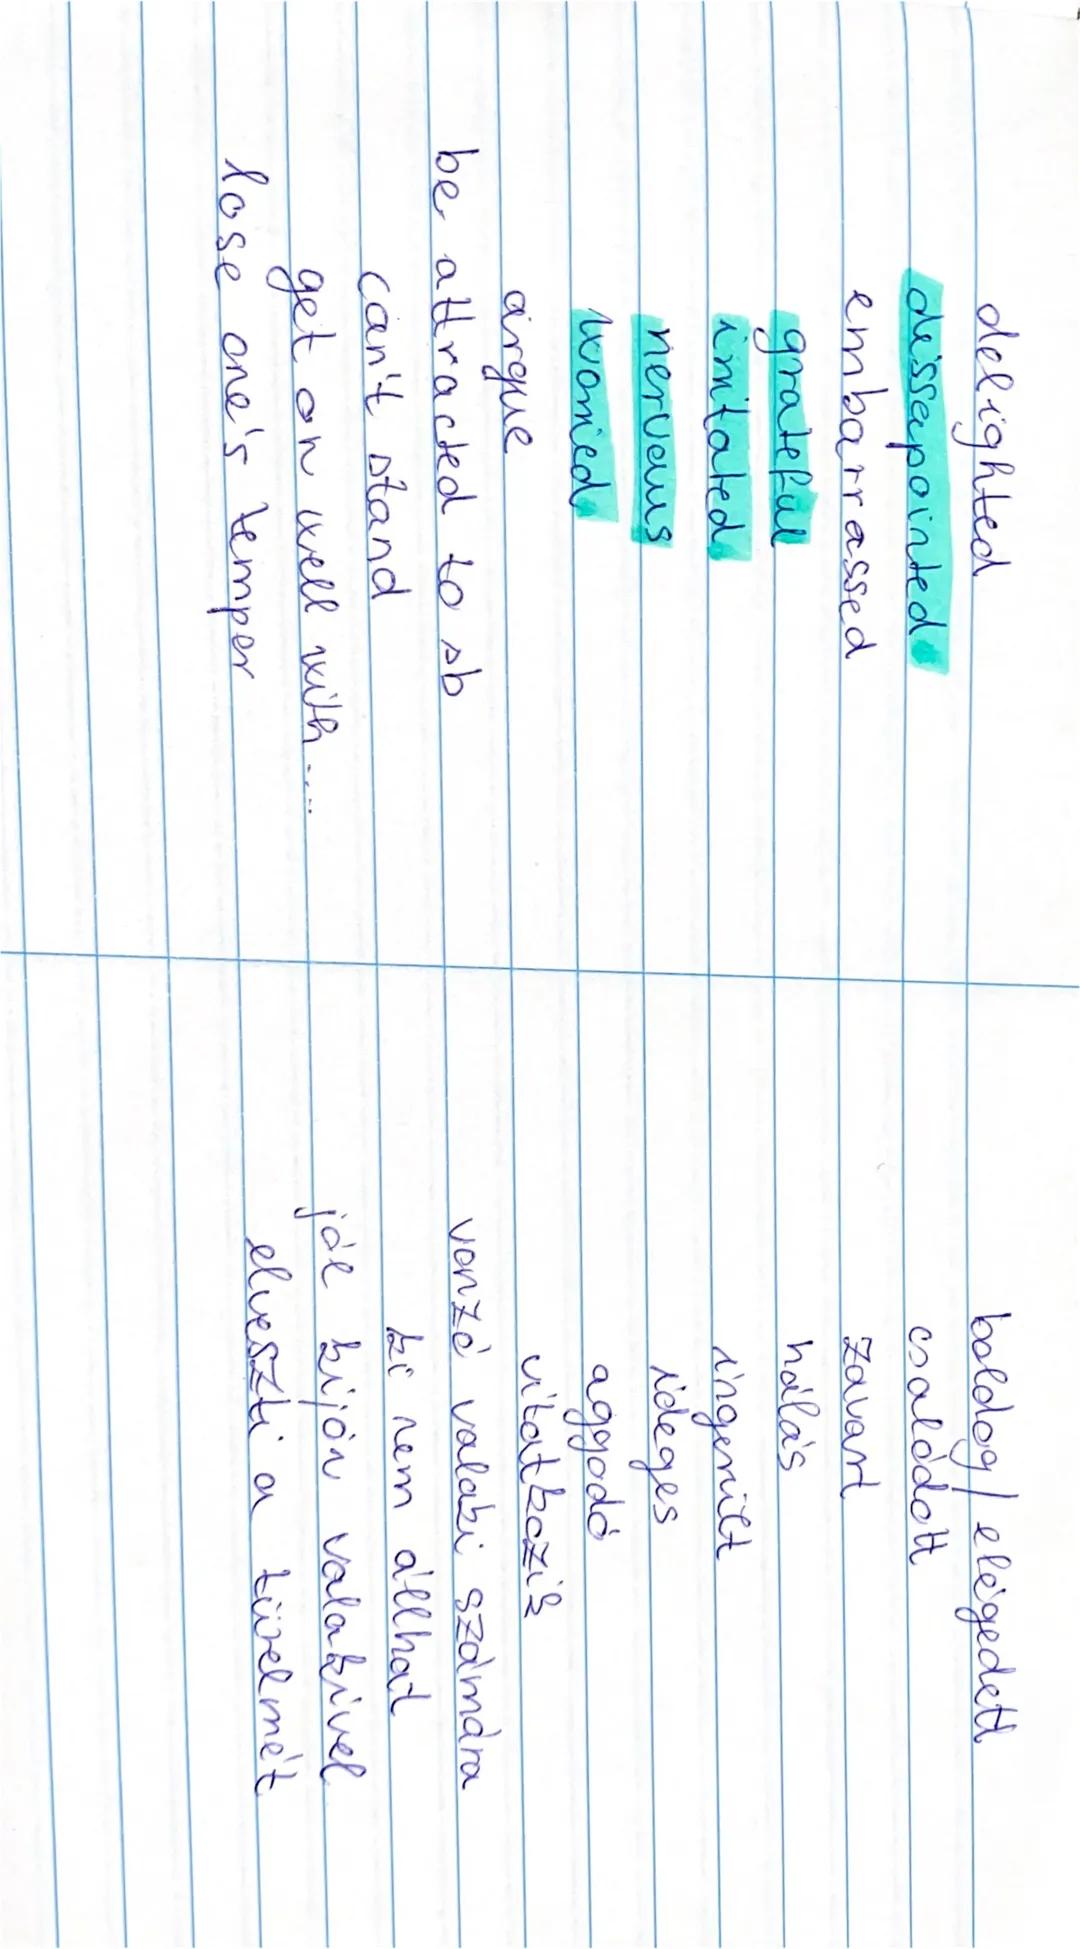 delighted baldog / elégedett
disseapointed csalódott
embarrassed zavart
grateful hálás
irritated ingerült
nerveous ideges
worried aggodó
argue vitatkozik
be attracted to sb vonzó valaki számára
can't stand ki nem állhat
get on well with.... jól kijön valakivel
lose one's temper elveszti a türelmét